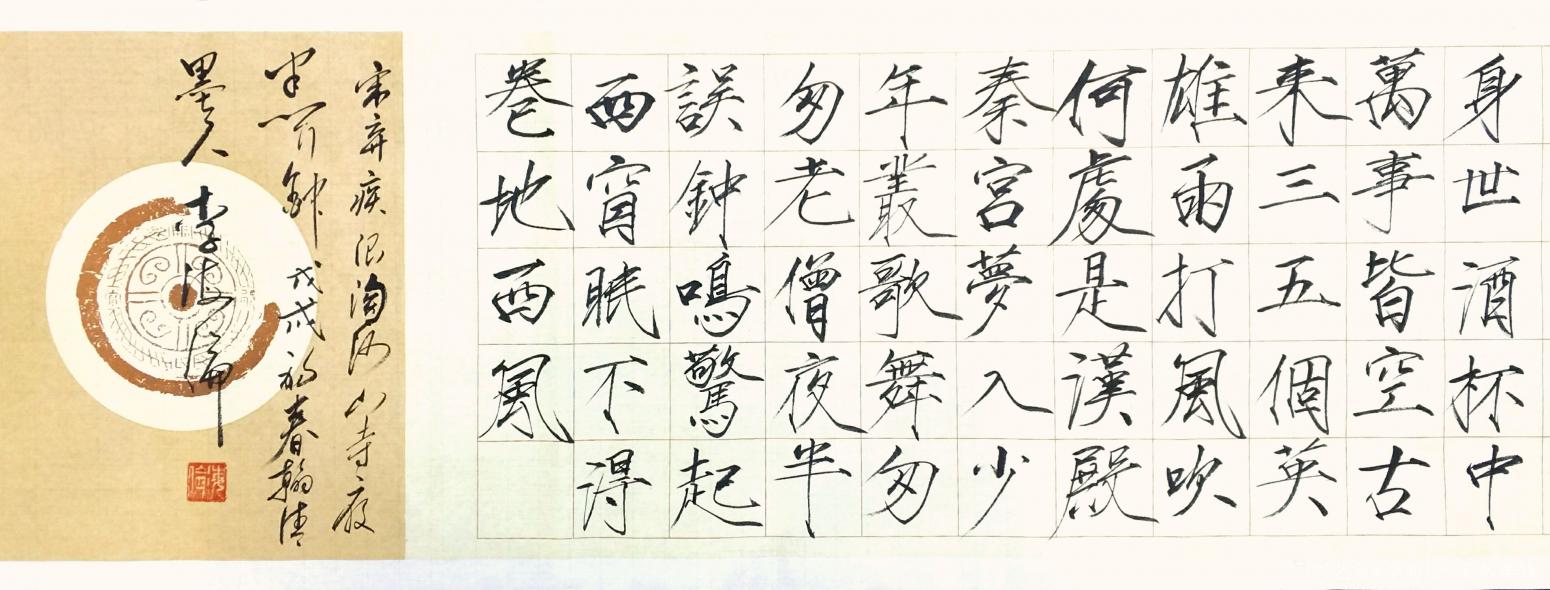 身世酒杯中
萬事皆空古
来三五個英
雄雨打風吹
何處是漢殿
秦宮夢入少
年叢歌舞匆
匆老僧夜半
誤鈡鳴驚起
西窗眠不得
卷地西風
宋弃疾浪淘沙山寺夜
半闻鈡 戊戌初春翰清
墨人 李海倫